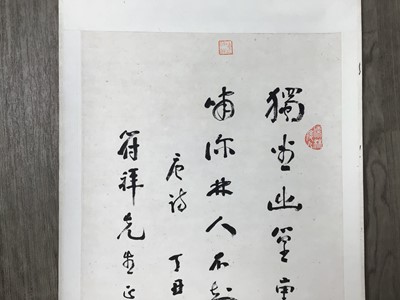 獨坐幽篁
嘯深林人不知
唐詩 丁丑
符祥先生正